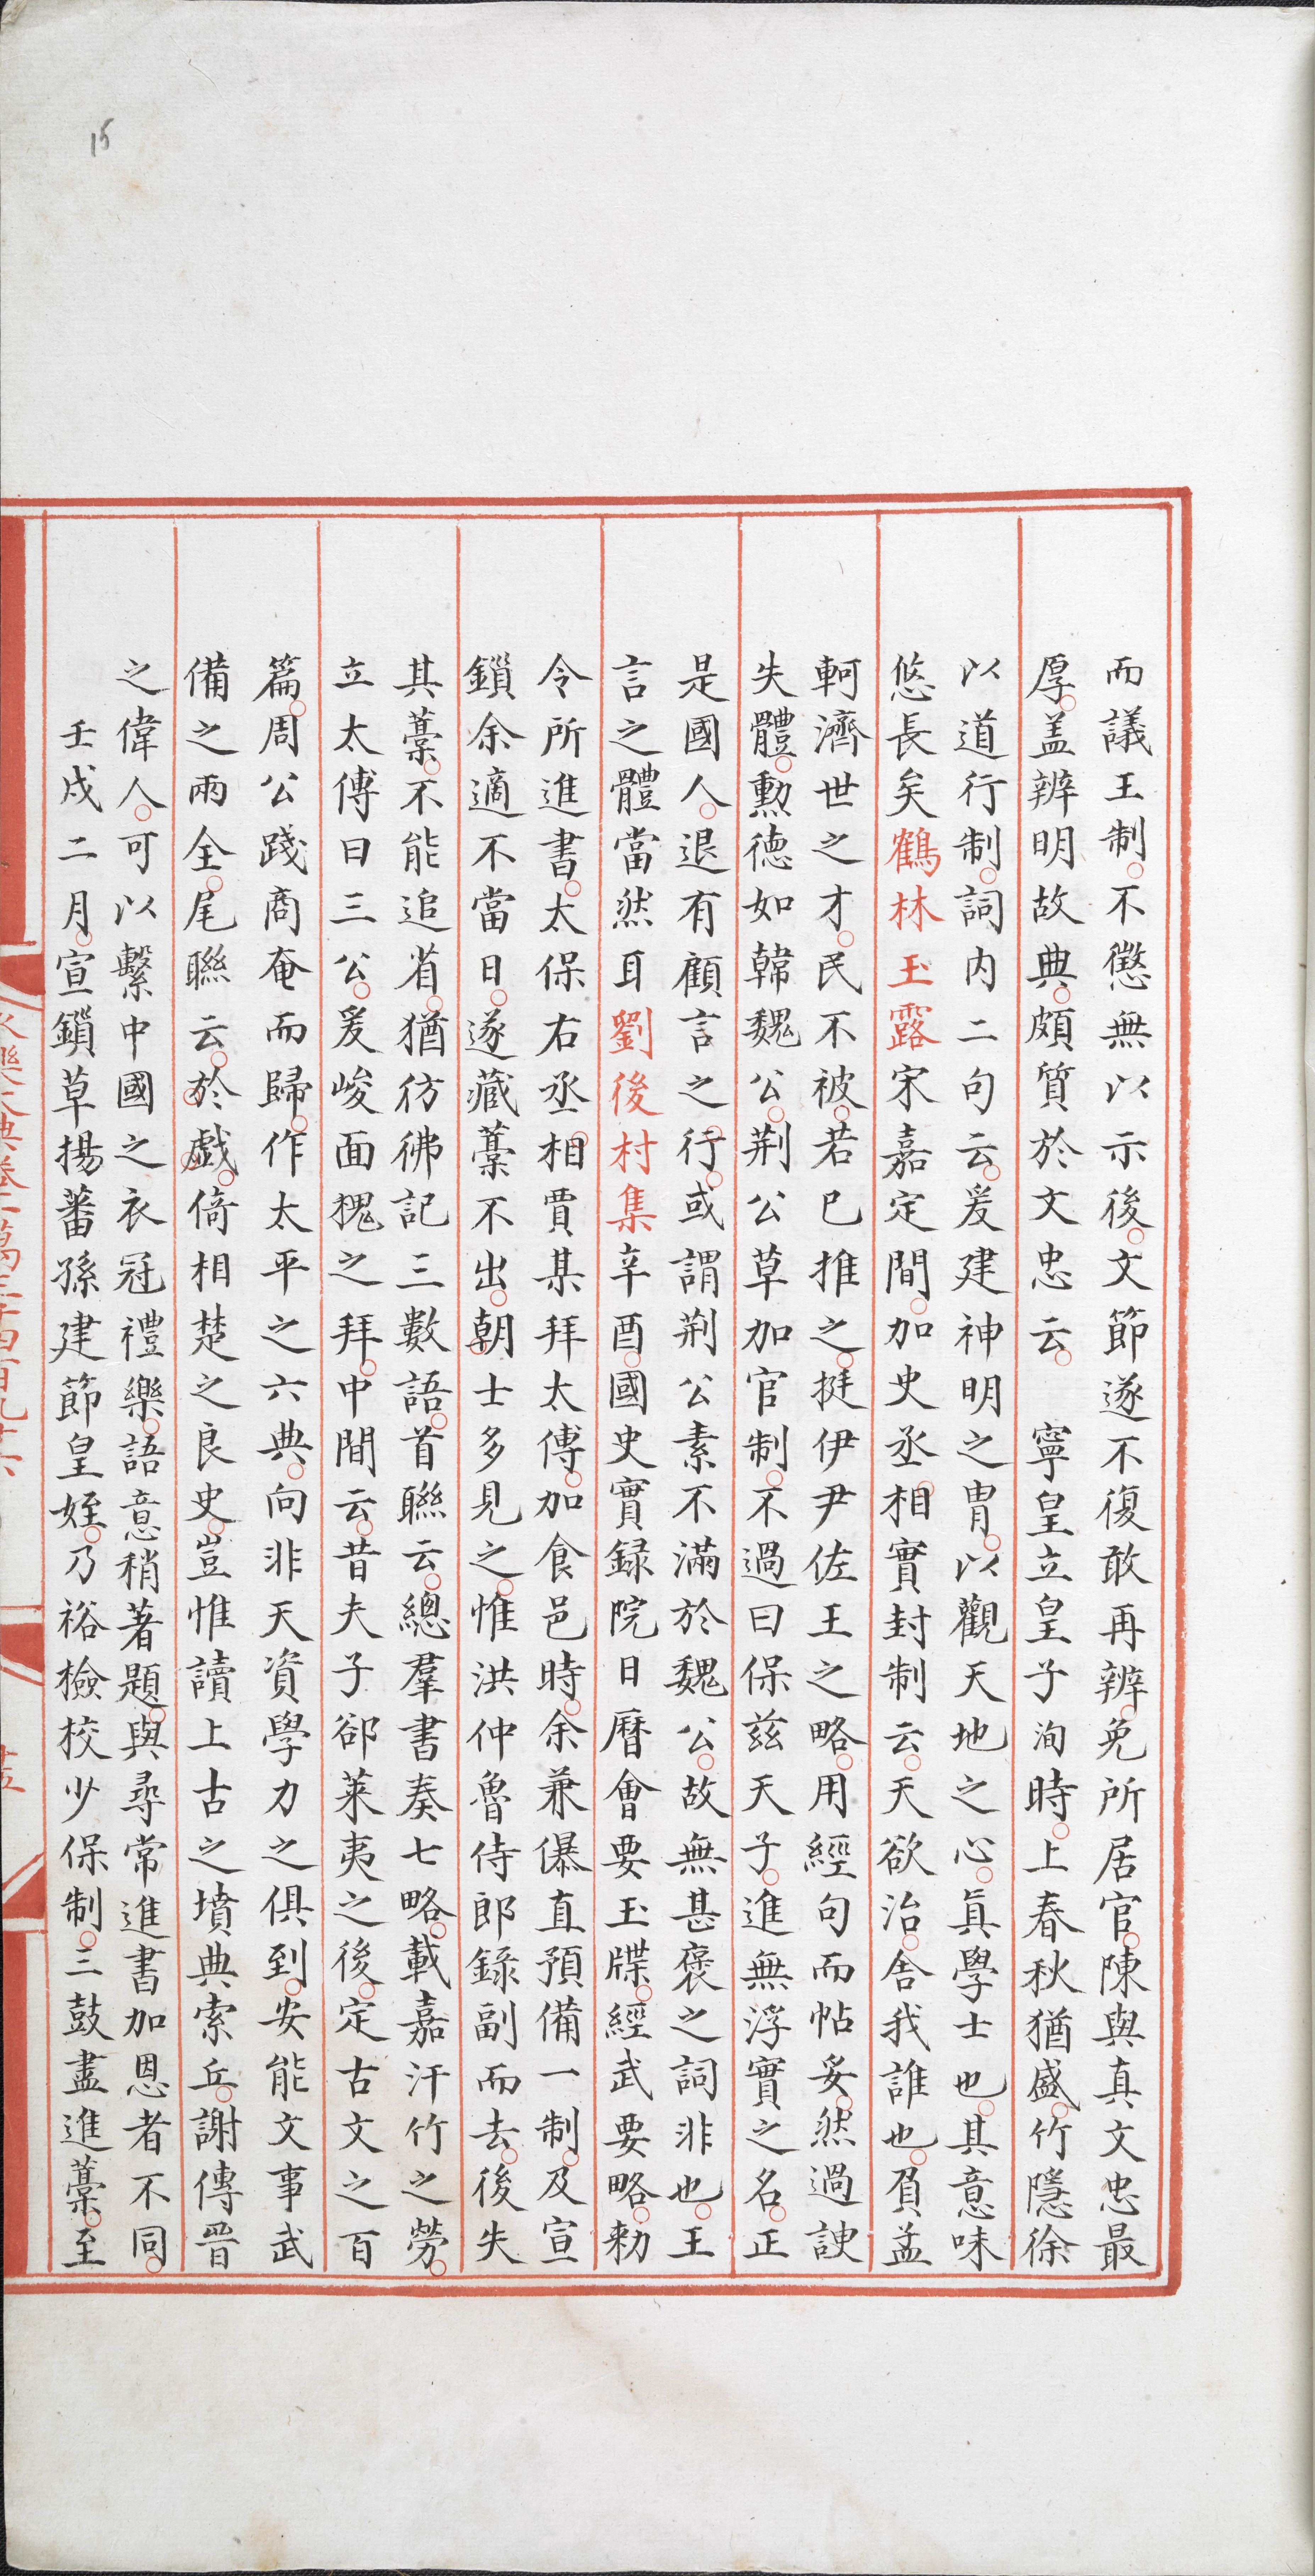 而議王制不懲無以示後文節遂不復敢再辨免所居官陳與真文忠最
厚盖辨明故典頗質於文忠云　寧皇立皇子洵時上春秋猶盛竹隱徐
以道行制詞内二句云爰建神明之胄以觀天地之心真學士也其意味
悠長矣鶴林玉露宋嘉定間加史丞相實封制云天欲治舍我誰也負孟
軻濟世之才民不被若已推之挺伊尹佐王之略用經句而帖妥然過諛
失體勲德如韓魏公荆公草加官制不過曰保兹天子進無浮實之名正
是國人退有顧言之行或謂荆公素不滿於魏公故無甚褒之詞非也王
言之體當然耳劉後村集辛酉國史實録院日曆會要玉牒經武要略勑
令所進書太保右丞相賈某拜太傅加食邑時余兼儤直預備一制及宣
鎖余適不當日遂藏藁不出朝士多見之惟洪仲魯侍郎錄副而去後失
其藁不能追省猶彷彿記三數語首聯云總羣書奏七略載嘉汗竹之勞
立太傅曰三公爰峻面槐之拜中間云昔夫子郤萊夷之後定古文之百
篇周公踐商奄而歸作太平之六典向非天資學力之俱到安能文事武
備之兩全尾聯云於戲倚相楚之良史豈惟讀上古之墳典索丘謝傳晉
之偉人可以繫中國之衣冠禮樂語意稍著題與尋常進書加恩者不同
壬戌二月宣鎖草揚蕃孫建節皇姪乃裕檢校少保制三鼓盡進藁至
15